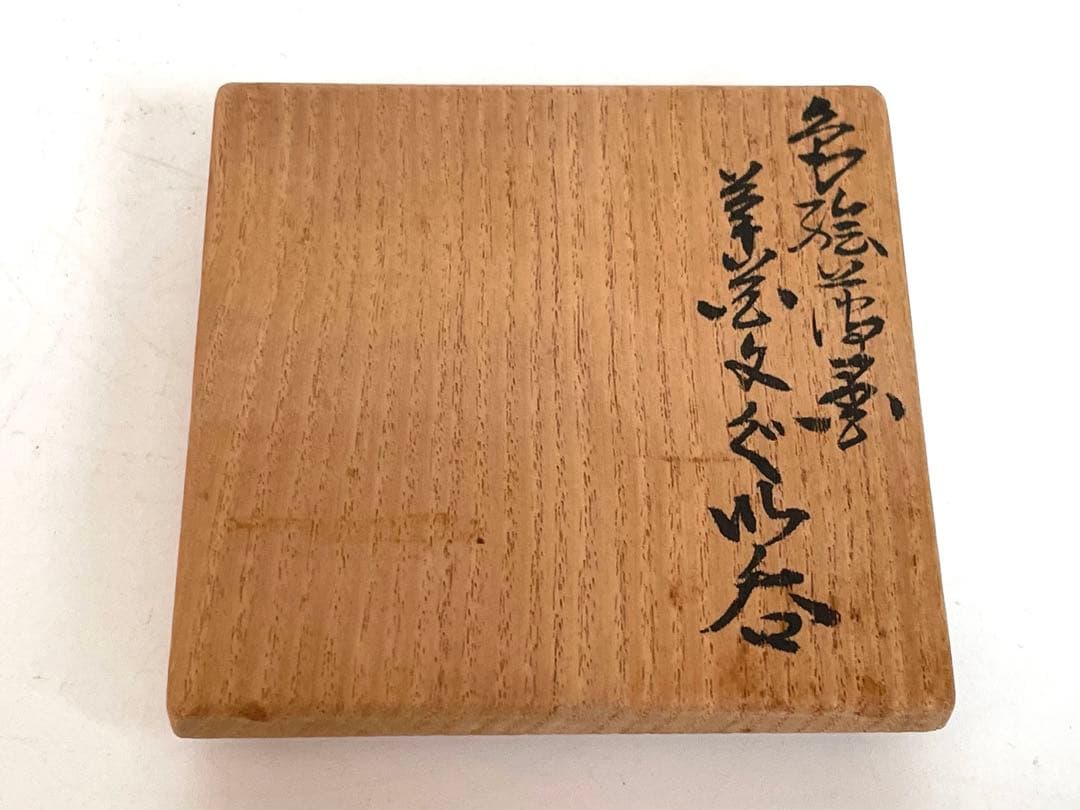 色絵薄墨
草花文ぐい呑